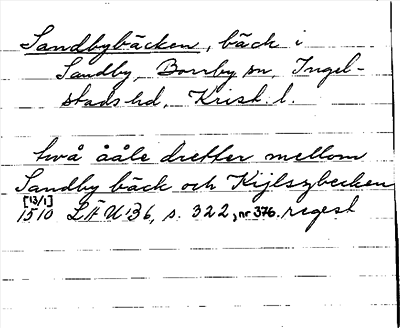 Sandbybäcken, bäck i
Sandby, Borrby sn, Ingel-
stads hd, Krist. l.
två ååle dretter mellom
Sandby bäck och Kijlszbecken
[13/1]
1510 LÄU 36, s. 322, nr 376. regest